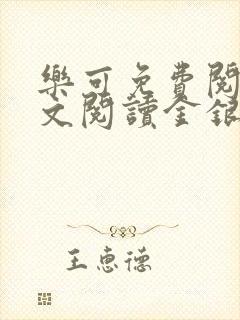 樂可免費閱
文閱讀金銀
王惠德